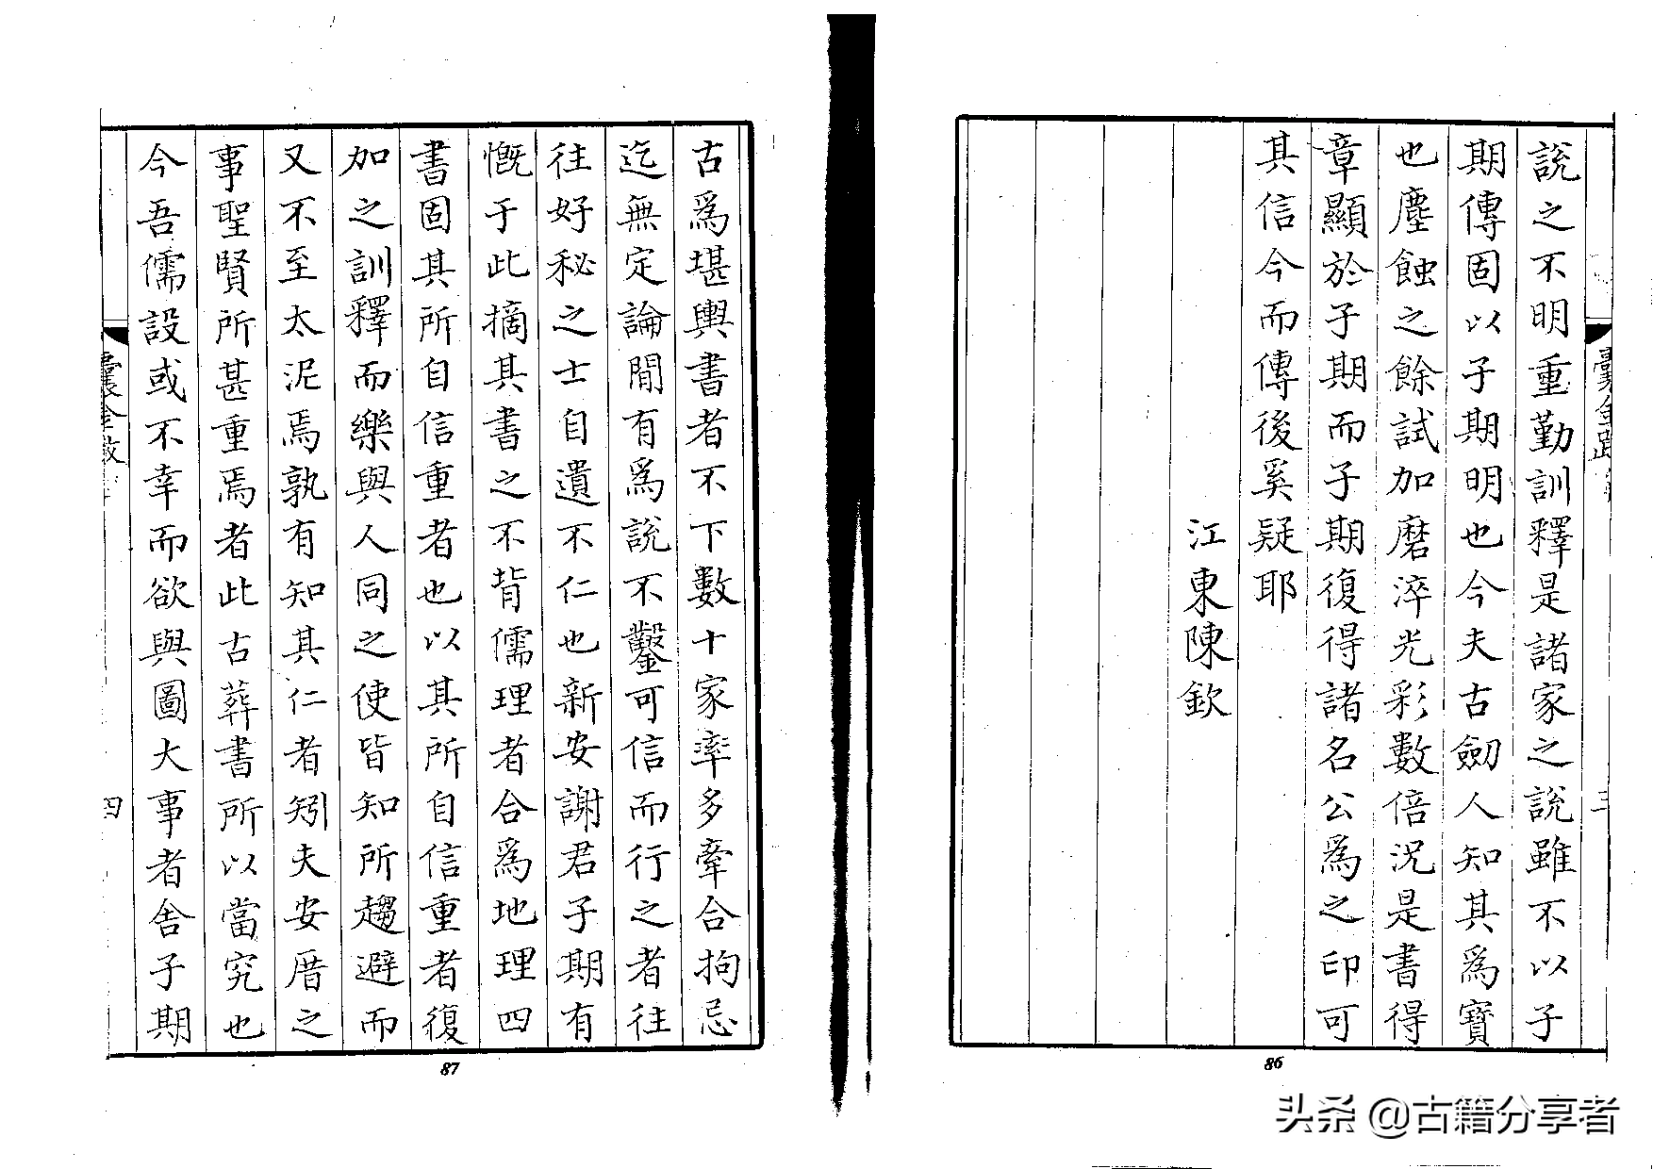 說之不明重勤訓釋是諸家之說雖不以子
期傳固以子期明也今夫古劒人知其爲寶
也塵蝕之餘試加磨淬光彩數倍况是書得
章顯於子期而子期復得諸名公爲之印可
其信今而傳後奚疑耶
江東陳欽
三
86
古爲堪輿書者不下數十家率多牽合拘忌
迄無定論間有爲說不鑿可信而行之者往
往好秘之士自遺不仁也新安謝君子期有
慨于此摘其書之不背儒理者合爲地理四
書固其所自信重者也以其所自信重者復
加之訓釋而樂與人同之使皆知所趨避而
又不至太泥焉孰有知其仁者矧夫安厝之
事聖賢所甚重焉者此古葬書所以當究也
今吾儒設或不幸而欲與圖大事者舍子期
四
87
头条 @古籍分享者